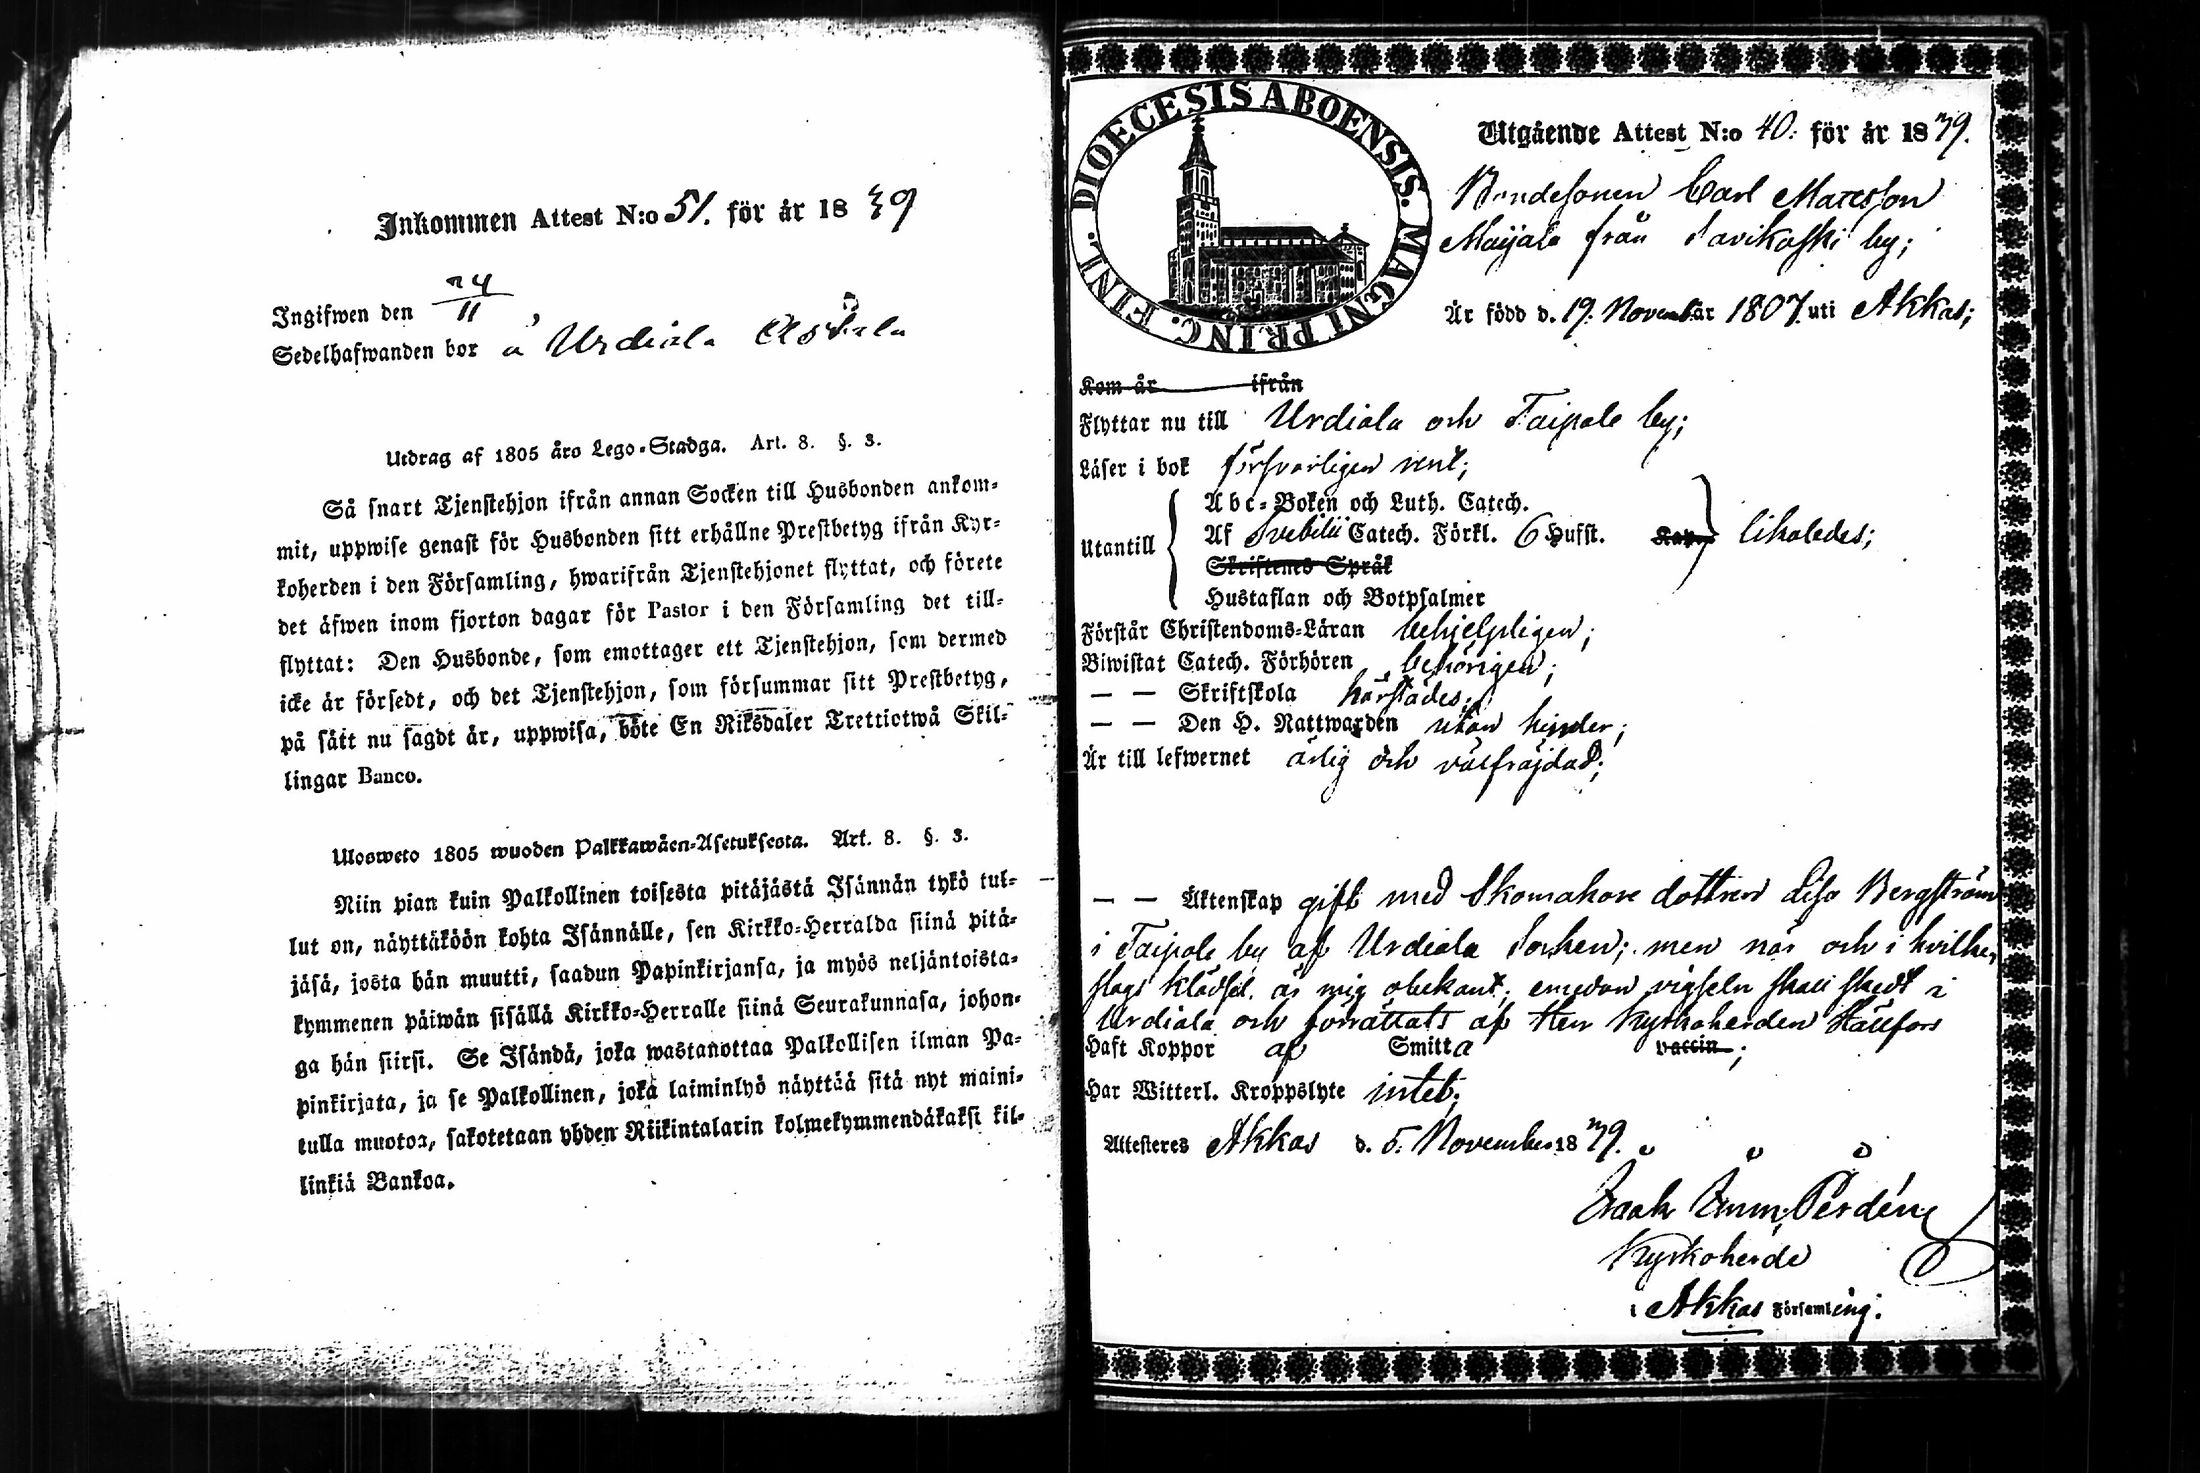 Inkommen Attest N:o 51. för år 1839
Ingifwen den 24/11
Sedelhafwanden bor å Urdiala
Utdrag af 1805 års Lego-Stadga. Art. 8. §. 3.
Så snart Tjenstehjon ifrån annan Socken till Husbonden ankom-
mit, uppwise genast för Husbonden sitt erhållne Prestbetyg ifrån Kyr-
koherden i den Församling, hwarifrån Tjenstehjonet flyttat, och förete
det äfwen inom fjorton dagar för Pastor i den Församling det till-
flyttat: Den Husbonde, som emottager ett Tjenstehjon, som dermed
icke är försedt, och det Tjenstehjon, som försummar sitt Prestbetyg,
på sätt nu sagdt är, uppwisa, böte En Riksdaler Trettiotwå Skil-
lingar Banco.
Ulosweto 1805 wuoden Palkkawäen-Asetuksesta. Art. 8. §. 3.
Niin pian kuin Palkollinen toisesta pitäjästä Isännän tykö tul-
lut on, näyttäköön kohta Isännälle, sen Kirkko-Herralda siinä pitä-
jäsä, josta hän muutti, saadun Papinkirjansa, ja myös neljäntoista-
kymmenen päiwän sisällä Kirkko-Herralle siinä Seurakunnasa, johon-
ga hän siirsi. Se Isändä, joka wastanottaa Palkollisen ilman Pa-
pinkirjata, ja se Palkollinen, joka laiminlyö näyttää sitä nyt maini-
tulla muotoa, sakotetaan yhden Riikintalarin kolmekymmendäkaksi kil-
linkiä Bankoa.
DIOECESIS ABOENSIS. MAGNI PRINC. FINL.
Utgående Attest N:o 40. för år 1839.
Bondesonen Carl Matsson
Maijala från Savikoski by;
Är född d. 19. November 1807. uti Akkas;
Kom år ifrån
Flyttar nu till Urdiala och Taipale by;
Läser i bok försvarligen rent;
Utantill
Abc-Boken och Luth. Catech.
Af Svebilii Catech. Förkl. 6 Hufst. likaledes;
Skriftenes Språk
Hustaflan och Botpsalmer
Förstår Christendoms-Läran behjelpligen;
Biwistat Catech. Förhören behörigen;
— — Skriftskola härstädes;
— — Den H. Nattwarden utan hinder;
Är till lefwernet ärlig och välfräjdad;
— — Äktenskap gift med Skomakare dottren Lisa Bergström
i Taipale by af Urdiala Socken; men när och i hvilken
slags klädsel, är mig obekant, emedan vigseln skall skedt i
Urdiala och förrättats af Herr Kyrkoherden Hällfors
Haft Koppor af Smitta vaccin;
Har Witterl. Kroppslyte intet;
Attesteres Akkas d. 5. November 1839.
Isaak Imm. Perdén
Kyrkoherde
i Akkas Församling.